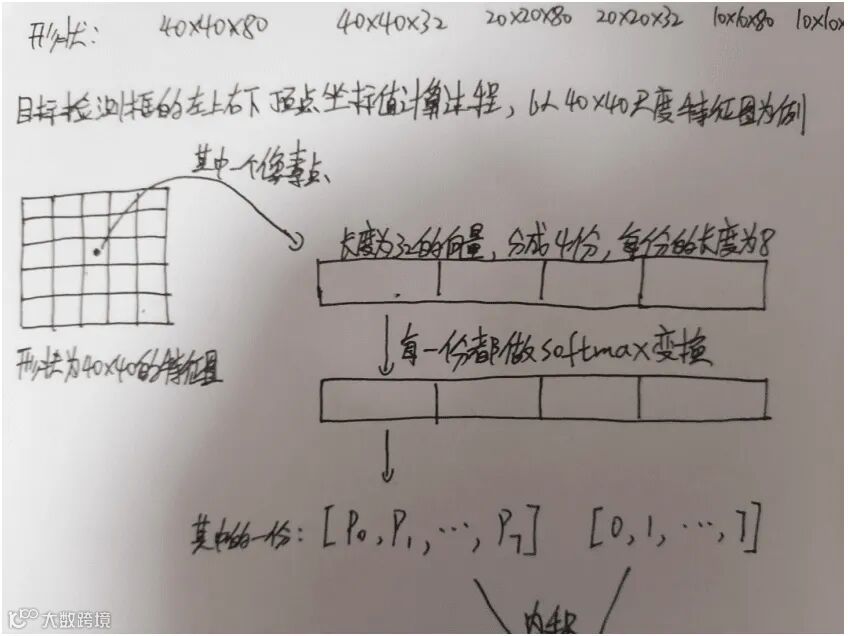 形状: 40×40×80 40×40×32 20×20×80 20×20×32 10×10×80 10×10×
目标检测框的左上右下顶点坐标值计算过程，以40×40尺度特征图为例
其中一个像素点
长度为32的向量，分成4份，每份的长度为8
每一份都做softmax变换
形状为40×40的特征图
其中的一份: [P₀, P₁, ⋯, P₇] [0, 1, ⋯, 7]
内积
大数跨境